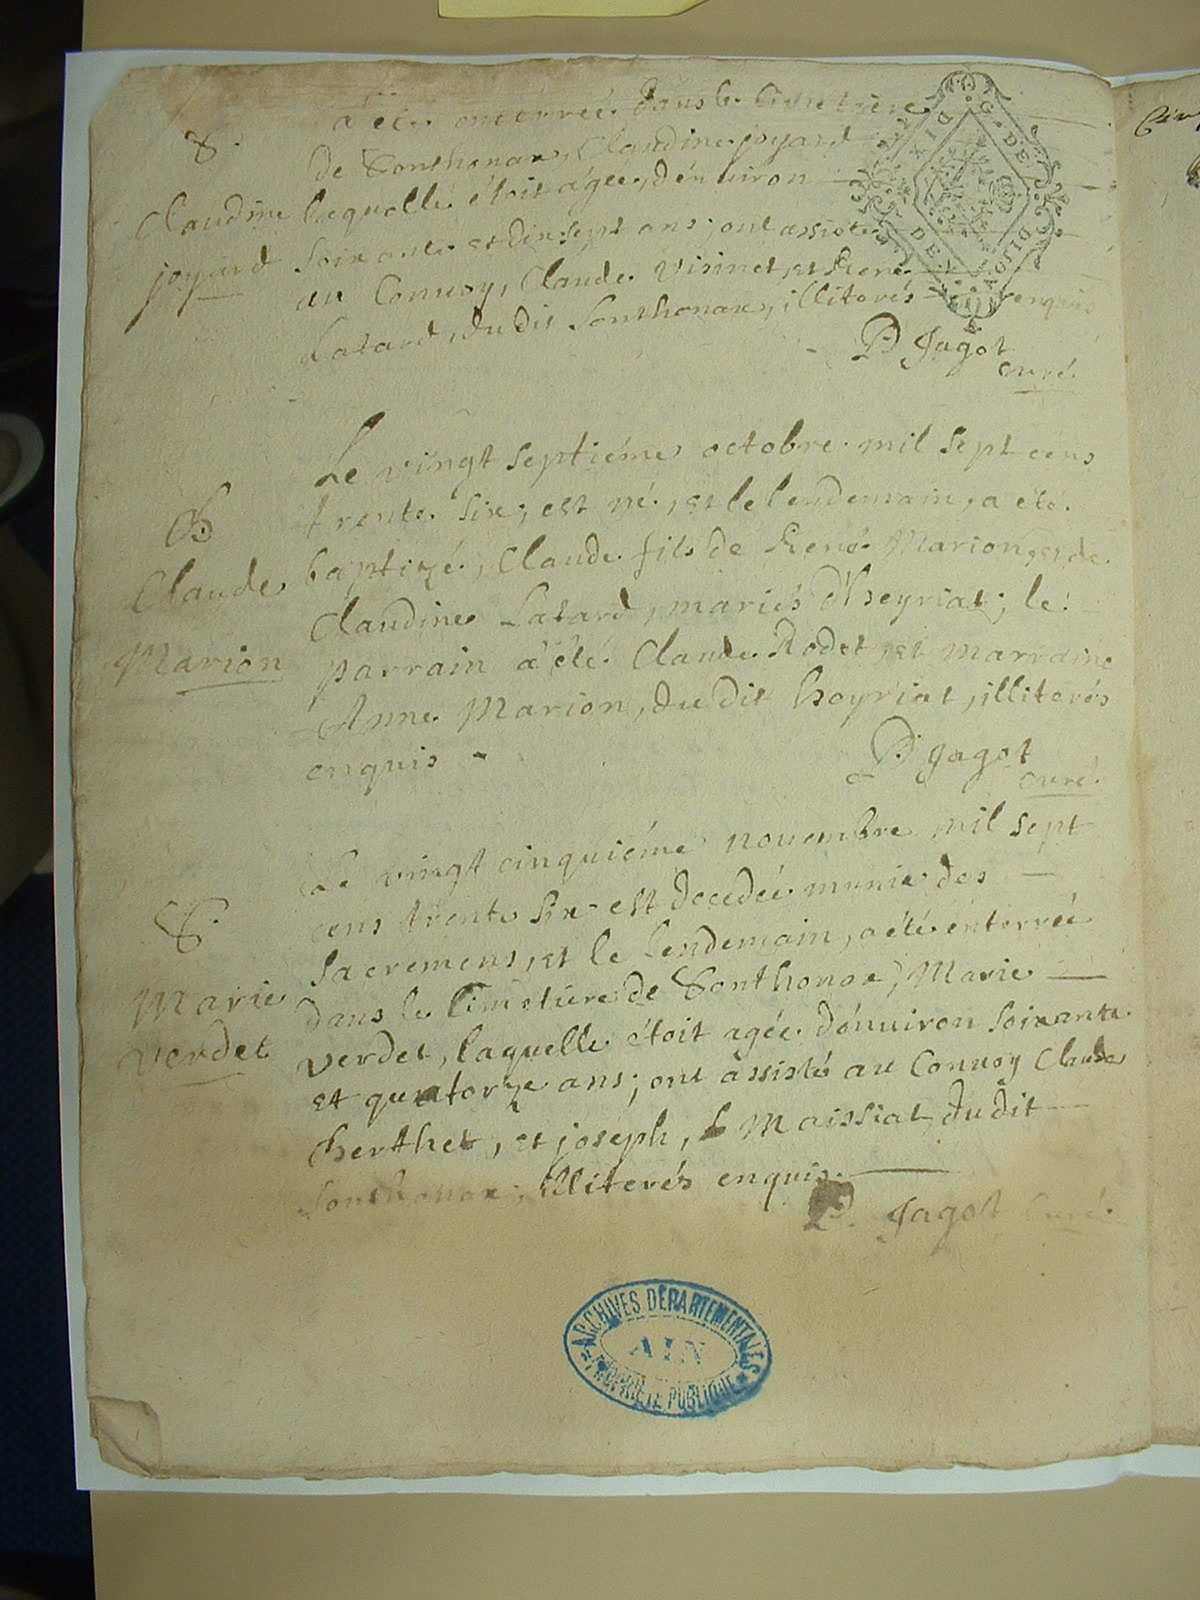 a été enterrée dans le Cimetière
S.
de Sonthonax, Claudine joyard
Claudine laquelle étoit agée, d'énuiron
joyard soixante et dix sept ans; ont assisté
au Conuoy, Claude Visinet, et René enquis
Latard, du dit Sonthonax, illiterés
P. Jagot
curé.
Le vingt septiéme octobre mil sept cens
B trente six, est né, et le lendemain, a été
Claude baptizé, Claude fils de René Marion, et de
Claudine Latard, mariés d'heyriat; le
Marion parrain a été Claude Rodet, et marraine
Anne Marion, du dit heyriat, illiterés
enquis -
P. Jagot
curé.
Le vingt cinquiéme nouembre mil sept
cens trente six est decedée munie des
S. sacremens, et le lendemain, a été enterrée
Marie dans le Cimetiere de Sonthonax, Marie
verdet verdet, laquelle étoit agée d'énuiron soixante
et quatorze ans; ont assisté au Conuoy Claude
berthet, et joseph, Maissiat, du dit
Sonthonax, illiterés enquis.
P. Jagot Curé.
ARCHIVES DÉPARTEMENTALES
AIN
PROPRIÉTÉ PUBLIQUE